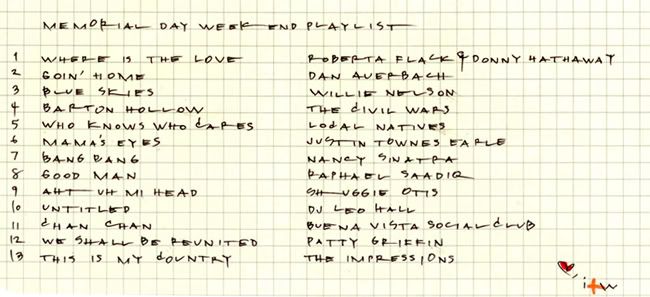 MEMORIAL DAY WEEKEND PLAYLIST
1 WHERE IS THE LOVE ROBERTA FLACK & DONNY HATHAWAY
2 GOIN' HOME DAN AUERBACH
3 BLUE SKIES WILLIE NELSON
4 BARTON HOLLOW THE CIVIL WARS
5 WHO KNOWS WHO CARES LOCAL NATIVES
6 MAMA'S EYES JUSTIN TOWNES EARLE
7 BANG BANG NANCY SINATRA
8 GOOD MAN RAPHAEL SAADIQ
9 AHT UH MI HEAD SHUGGIE OTIS
10 UNTITLED DJ LEO HALL
11 CHAN CHAN BUENA VISTA SOCIAL CLUB
12 WE SHALL BE REUNITED PATTY GRIFFIN
13 THIS IS MY COUNTRY THE IMPRESSIONS
itw